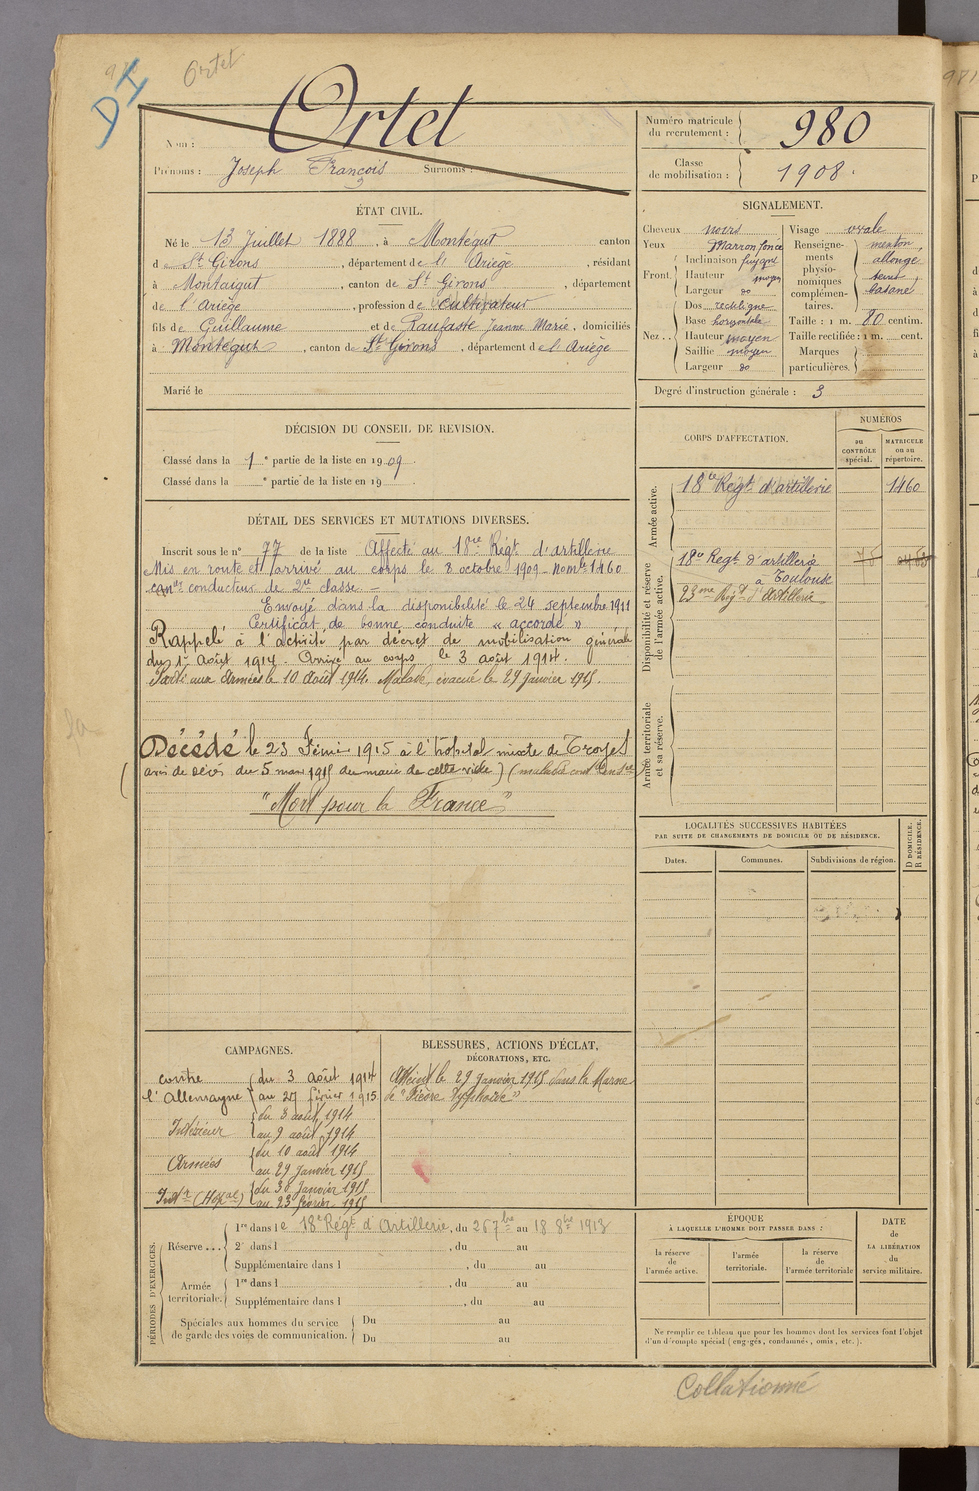 Ortet
DI
Ortet
Nom :
Prénoms : Joseph François Surnoms :
Numéro matricule du recrutement : 980
Classe de mobilisation : 1908.
ÉTAT CIVIL.
Né le 13 Juillet 1888, à Montégut canton
d e St Girons, département de l'Ariège, résidant
à Montaigut, canton de St Girons, département
de l'Ariège, profession de Cultivateur
fils de Guillaume et de Raufaste Jeanne Marie, domiciliés
à Montégut, canton de St Girons, département d e l'Ariège
Marié le
SIGNALEMENT.
Cheveux noirs
Yeux Marron foncé
Front. Inclinaison fuyant
Hauteur moyen
Largeur do
Nez . . Dos rectiligne
Base horizontale
Hauteur moyen
Saillie moyen
Largeur do
Visage ovale
Renseignements physionomiques complémentaires. menton allongé teint basané
Taille : 1 m. 80 centim.
Taille rectifiée : 1 m. cent.
Marques particulières.
Degré d'instruction générale : 3
DÉCISION DU CONSEIL DE REVISION.
Classé dans la 1 e partie de la liste en 1909.
Classé dans la e partie de la liste en 19 .
DÉTAIL DES SERVICES ET MUTATIONS DIVERSES.
Inscrit sous le n° 77 de la liste Affecté au 18e Régt d'artillerie
Mis en route et arrivé au corps le 8 octobre 1909 - nom le 1460
conducteur de 2e classe -
Envoyé dans la disponibilité le 24 septembre 1911
Certificat de bonne conduite « accordé »
Rappelé à l'activité par décret de mobilisation générale
du 1er août 1914. Arrivé au corps le 3 août 1914.
Parti aux Armées le 10 août 1914. Malade, évacué le 29 janvier 1915.
Décédé le 23 Février 1915 à l'hôpital mixte de Troyes
(avis de décès du 5 mars 1915 du maire de cette ville) (maladie
"Mort pour la France"
CORPS D'AFFECTATION.
NUMÉROS
au CONTRÔLE spécial.
MATRICULE ou au répertoire.
Armée active.
18e Regt d'artillerie 1460
Disponibilité et réserve de l'armée active.
18e Regt d'artillerie
à Toulouse
23me Régt d'Artillerie
Armée territoriale et sa réserve.
LOCALITÉS SUCCESSIVES HABITÉES
PAR SUITE DE CHANGEMENTS DE DOMICILE OU DE RÉSIDENCE.
Dates. Communes. Subdivisions de région. D DOMICILE. R RÉSIDENCE.
CAMPAGNES.
contre l'Allemagne du 3 août 1914
au 27 février 1915
Intérieur du 3 août 1914
au 9 août 1914
Armées du 10 août 1914
au 29 janvier 1915
Intr (Hopal) du 30 janvier 1915
au 23 février 1915
BLESSURES, ACTIONS D'ÉCLAT,
DÉCORATIONS, ETC.
Atteint le 29 janvier 1915 dans la Marne
de "Fièvre typhoïde"
PÉRIODES D'EXERCICES.
Réserve . . . 1re dans le 18e Régt d'Artillerie, du 26 7bre au 18 8bre 1913
2e dans l , du au
Supplémentaire dans l , du au
Armée territoriale. 1re dans l , du au
Supplémentaire dans l , du au
Spéciales aux hommes du service de garde des voies de communication. Du au
Du au
ÉPOQUE
À LAQUELLE L'HOMME DOIT PASSER DANS :
la réserve de l'armée active.
l'armée territoriale.
la réserve de l'armée territoriale
DATE de LA LIBÉRATION du service militaire.
Ne remplir ce tableau que pour les hommes dont les services font l'objet
d'un décompte spécial (engagés, condamnés, omis, etc.).
Collationné